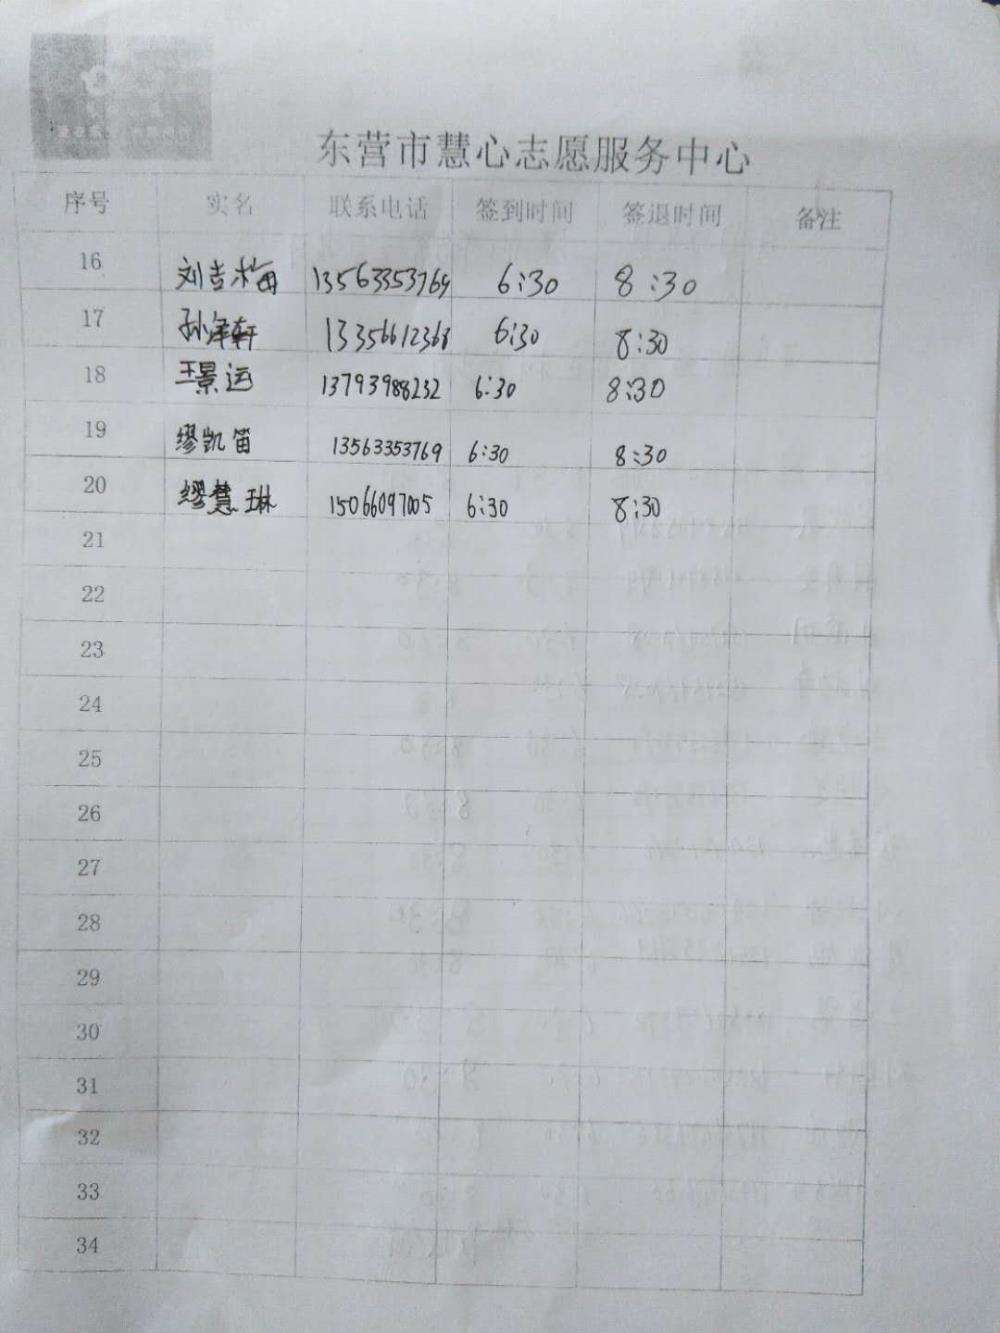 东营市慧心志愿服务中心
序号 实名 联系电话 签到时间 签退时间 备注
16 刘吉梅 13563353769 6:30 8:30
17 孙泽轩 13356612368 6:30 8:30
18 王景运 13793988232 6:30 8:30
19 缪凯笛 13563353769 6:30 8:30
20 缪慧琳 15066097005 6:30 8:30
21
22
23
24
25
26
27
28
29
30
31
32
33
34